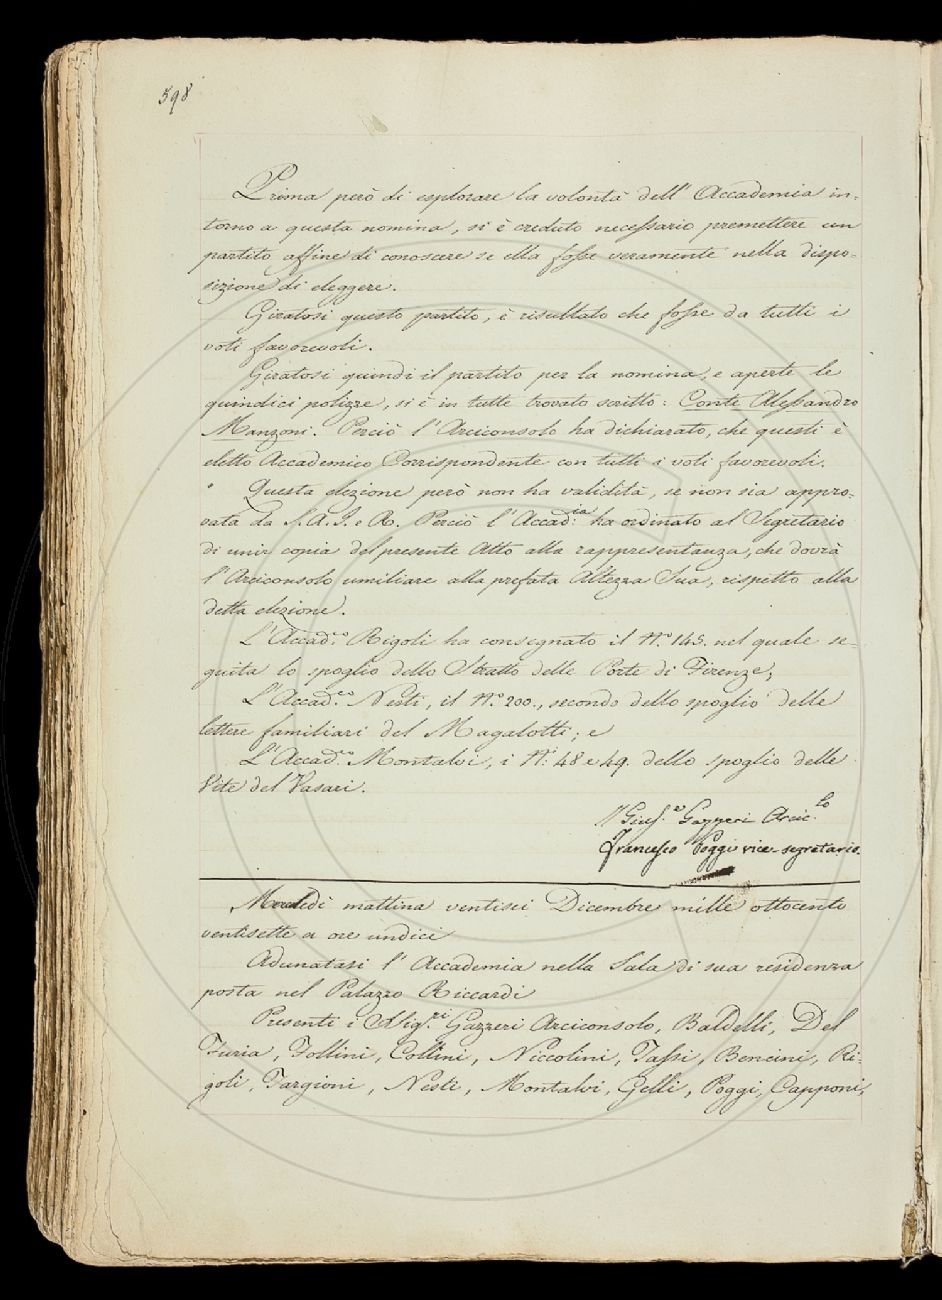 398
Prima però di esplorare la volontà dell' Accademia in-
torno a questa nomina, si è creduto necessario premettere un
partito affine di conoscere se ella fosse veramente nella dispo-
sizione di eleggere.
Giratosi questo partito, è risultato che fosse da tutti i
voti favorevoli.
Giratosi quindi il partito per la nomina, e aperte le
quindici polizze, si è in tutte trovato scritto: Conte Alessandro
Manzoni. Perciò l'Arciconsolo ha dichiarato, che questi è
eletto Accademico Corrispondente con tutti i voti favorevoli.
Questa elezione però non ha validità, se non sia appro-
vata da S. A. I. e R. Perciò l'Accad.ia ha ordinato al Segretario
di unir copia del presente Atto alla rappresentanza, che dovrà
l'Arciconsolo umiliare alla prefata Altezza Sua, rispetto alla
detta elezione.
L'Accad.co Rigoli ha consegnato il N.o 145. nel quale se-
guita lo spoglio dello Stratto delle Porte di Firenze;
L'Accad.co Nesti, il N.o 200., secondo dello spoglio delle
lettere familiari del Magalotti; e
L'Accad.co Montalvi, i N.i 48 e 49. dello spoglio delle
Vite del Vasari.
Gius.e Gazzeri Arcic.lo
Francesco Poggi vice-segretario.
mattina ventisei Dicembre mille ottocento
ventisette a ore undici
Adunatasi l'Accademia nella Sala di sua residenza
posta nel Palazzo Riccardi
Presenti i Sig.ri Gazzeri Arciconsolo, Baldelli, Del
Furia, Follini, Collini, Niccolini, Tassi, Bencini, Ri-
goli, Targioni, Nesti, Montalvi, Gelli, Poggi, Capponi,